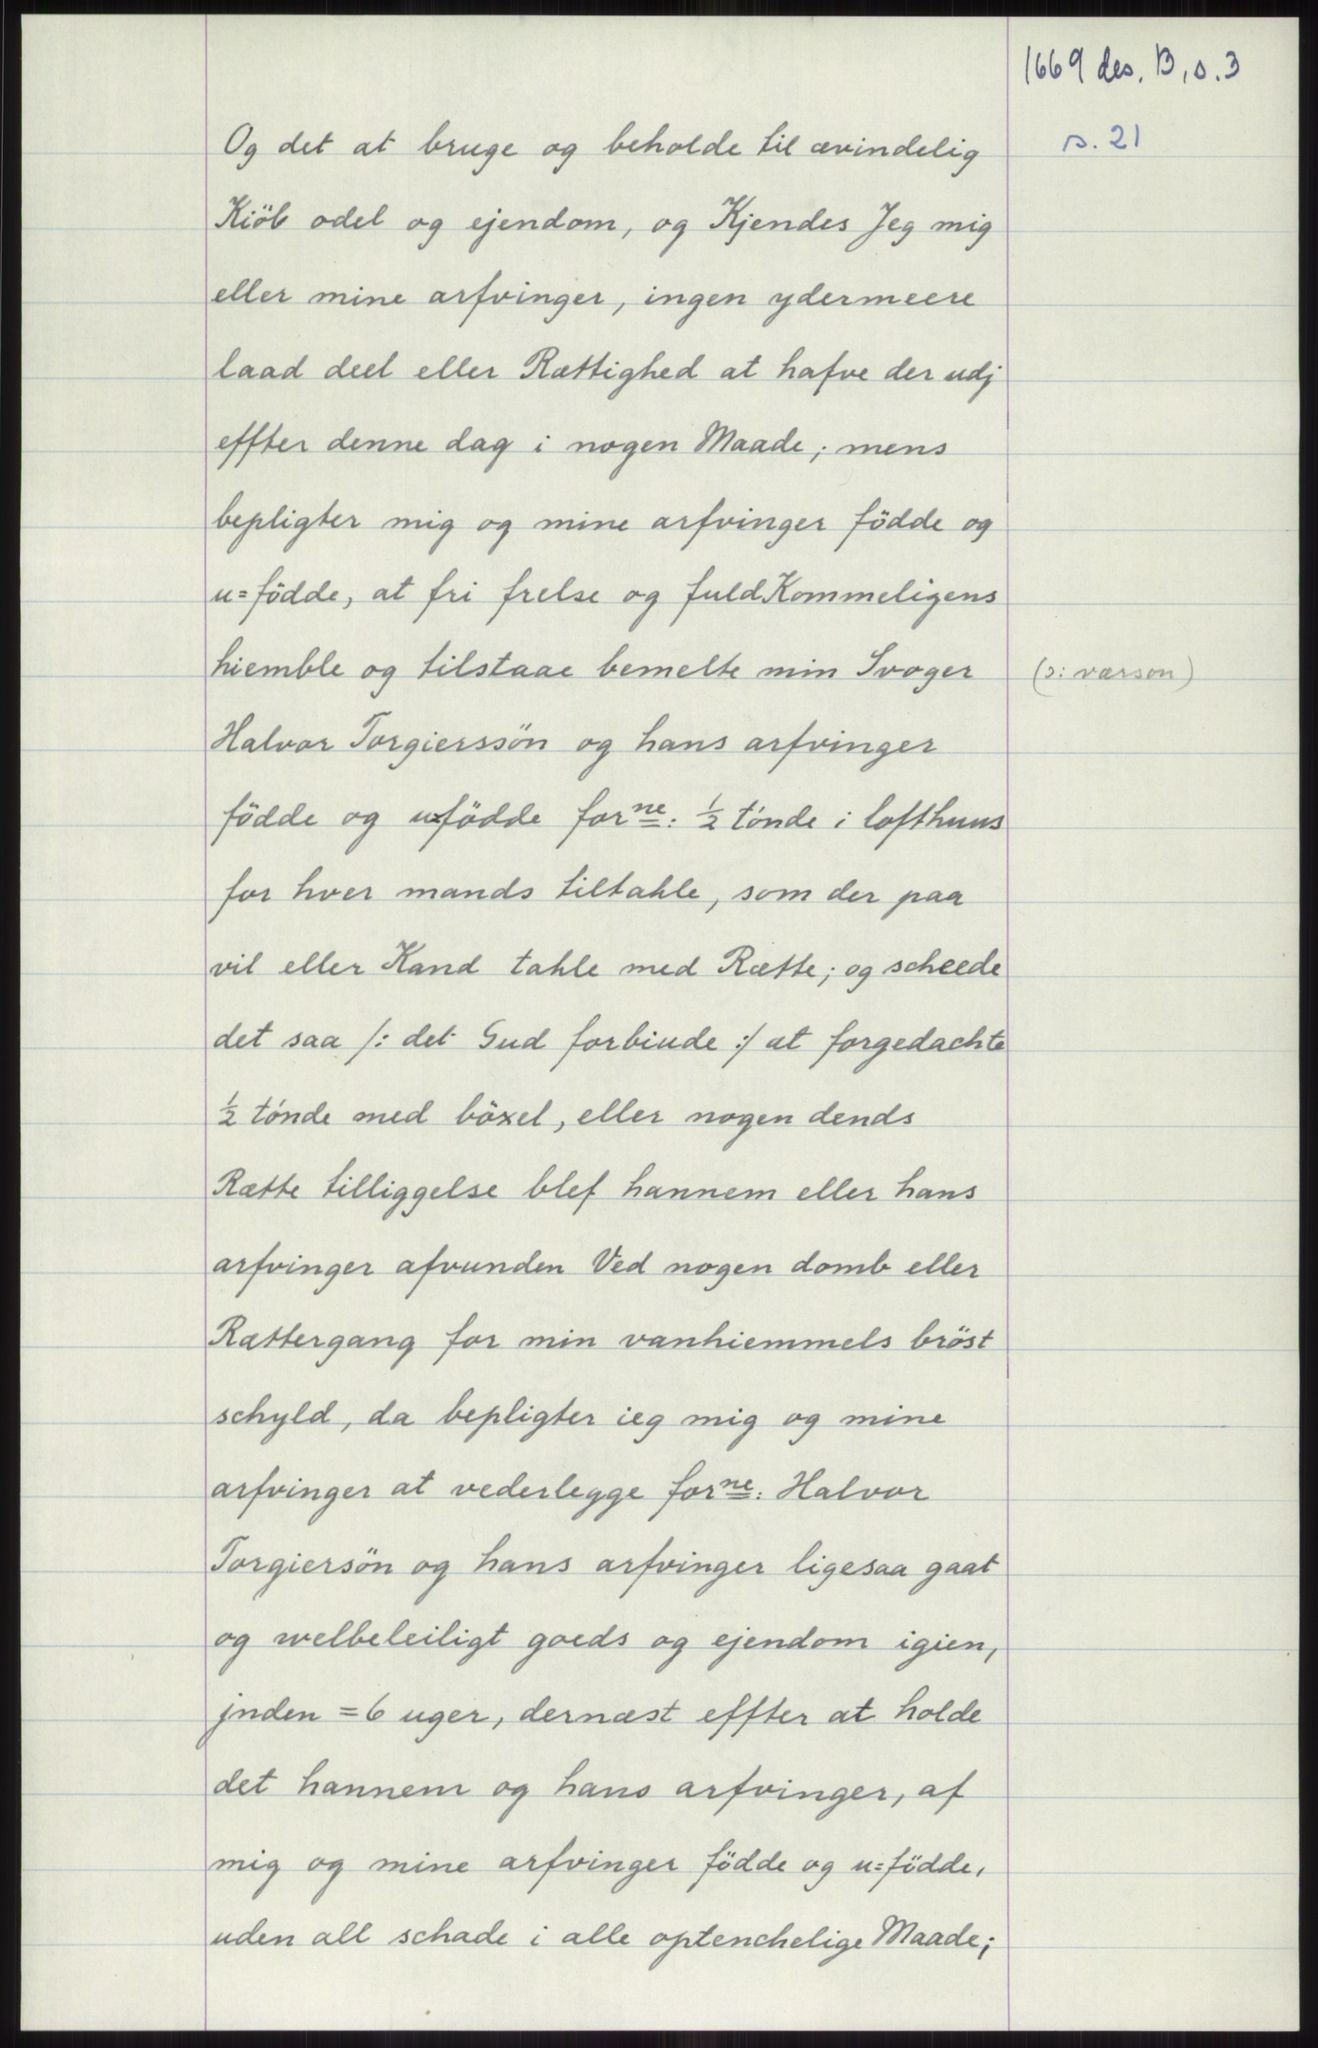 1669 des. B, s. 3
s. 21
Og det at bruge og beholde til ævindelig
Kiöb odel og ejendom, og Kjendes Jeg mig
eller mine arfvinger, ingen ydermeere
laad deel eller Rættighed at hafve der udj
effter denne dag i nogen Maade; mens
bepligter mig og mine arfvinger födde og
u=födde, at fri frelse og fuldKommeligens
hiemble og tilstaae bemelte min Svoger
(ɔ: værson)
Halvor Torgierssön og hans arfvinger
födde og u=födde forne: ½ tónde i lofthuus
for hver mands tiltahle, som der paa
vil eller Kand tahle med Rætte; og scheede
det saa /: det Gud forbiude :/ at forgedachte
½ tónde med böxel, eller nogen dends
Rætte tilliggelse blef hannem eller hans
arfvinger afvunden Ved nogen domb eller
Rættergang for min vanhiemmels bröst
schyld, da bepligter ieg mig og mine
arfvinger at vederlegge forne: Halvor
Torgiersön og hans arfvinger ligesaa gaat
og welbeleiligt goeds og ejendom igien,
jnden =6 uger, dernæst effter at holde
det hannem og hans arfvinger, af
mig og mine arfvinger födde og u=födde,
uden all schade i alle optenchelige Maade;